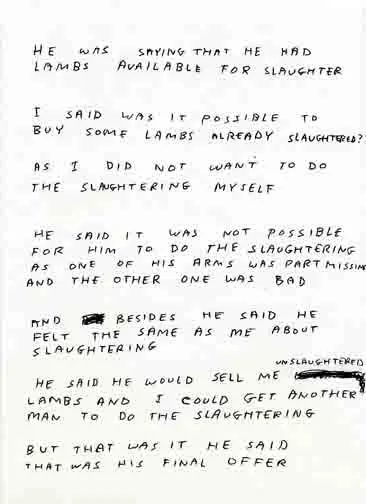 HE WAS SAYING THAT HE HAD
LAMBS AVAILABLE FOR SLAUGHTER
I SAID WAS IT POSSIBLE TO
BUY SOME LAMBS ALREADY SLAUGHTERED?
AS I DID NOT WANT TO DO
THE SLAUGHTERING MYSELF
HE SAID IT WAS NOT POSSIBLE
FOR HIM TO DO THE SLAUGHTERING
AS ONE OF HIS ARMS WAS PART MISSING
AND THE OTHER ONE WAS BAD
AND BESIDES HE SAID HE
FELT THE SAME AS ME ABOUT
SLAUGHTERING
UNSLAUGHTERED
HE SAID HE WOULD SELL ME
LAMBS AND I COULD GET ANOTHER
MAN TO DO THE SLAUGHTERING
BUT THAT WAS IT HE SAID
THAT WAS HIS FINAL OFFER